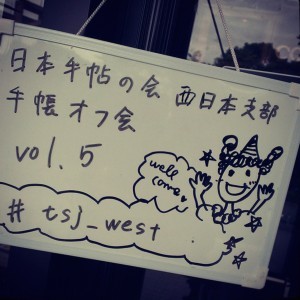 日本手帖の会 西日本支部
手帳オフ会
vol.5
well
come
# tsj_west